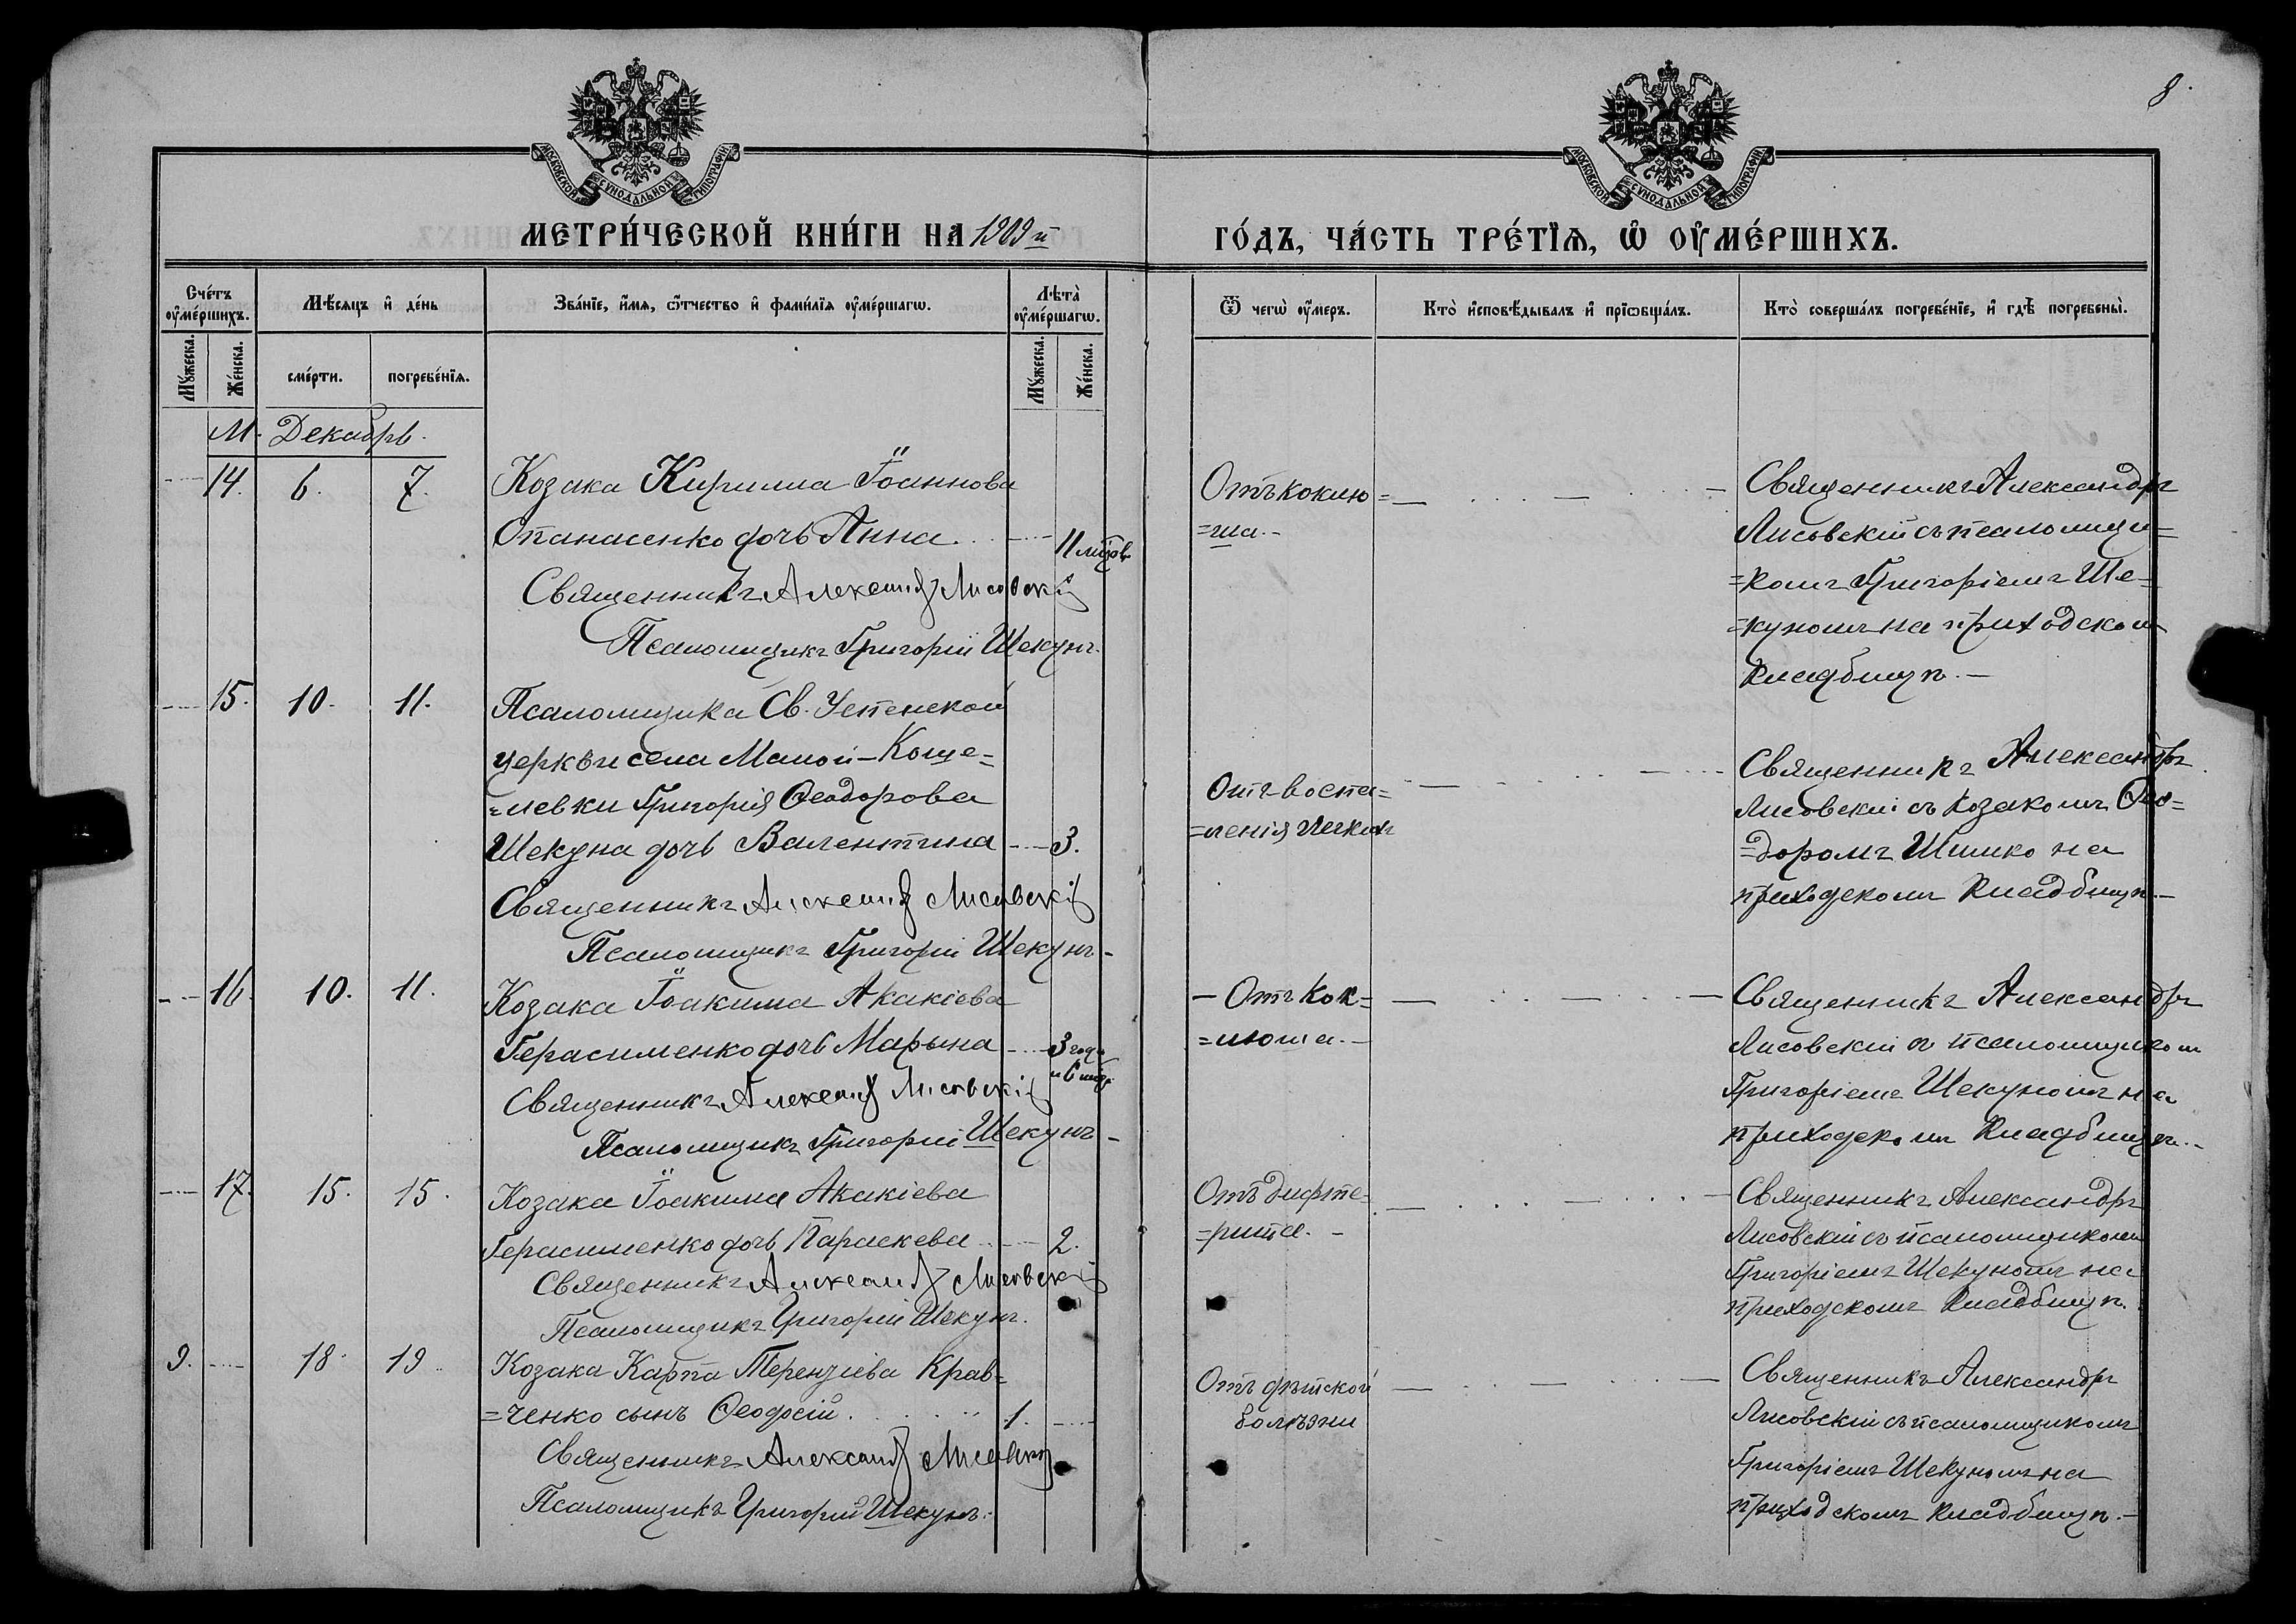 8.
МОСКОВСКОЙ СУНОДАЛЬНОЙ ТИПОГРАФІИ
МОСКОВСКОЙ СУНОДАЛЬНОЙ ТИПОГРАФІИ
МЕТРИ́ЧЕСКОЙ КНИ́ГИ НА 1909 й
ГО́ДЪ, ЧА́СТЬ ТРЕ́ТІѦ, Ѡ ОУМЕ́РШИХЪ.
Сче́тъ оуме́ршихъ.
Мꙋ́жеска.
Же́нска.
Мѣ́сяцъ и де́нь
сме́рти.
погребе́нїѧ.
Зва́нїе, и́мѧ, ѻ́тчество и фами́лїѧ оуме́ршагѡ.
Лѣта̀ оуме́ршагѡ.
Мꙋ́жеска.
Же́нска.
Ѿ чегѡ̀ оу́меръ.
Кто̀ и҆сповѣ́дывалъ и҆ прїѡбща́лъ.
Кто̀ соверша́лъ погребе́нїе, и҆ гдѣ̀ погребены̀.
М. Декабрь.
14. 6. 7. Козака Кирилла Іоаннова
Опанасенко дочь Анна. 11 мцевъ
Священникъ Александр Лисовскій
Псаломщикъ Григорій Шекунъ.
Отъ коклю=
=ша.-
Священникъ Александръ
Лисовскій съ псаломщи=
=комъ Григоріемъ Ше=
=куномъ на приходском
кладбищѣ.-
15. 10. 11. Псаломщика Св. Успенской
церкви села Малой-Коще=
=леvки Григорія Ѳеодорова
Шекуна дочь Валентина 3.
Священникъ Александ Лисовскій
Псаломщикъ Григорій Шекунъ-
Отъ воспа=
=ленія легкихъ
Священникъ Александръ
Лисовскій съ козакомъ Ѳео=
=доромъ Шишко на
приходскомъ кладбищѣ.-
16. 10. 11. Козака Іоакима Акакіева
Герасименко дочь Марьяна 3 года
и 6 мцев
Священникъ Александ Лисовскій
Псаломщикъ Григорій Шекунъ-
- Отъ кок=
=люша.-
Священникъ Александръ
Лисовскій съ псаломщиком
Григоріемъ Шекуномъ на
приходскомъ кладбищѣ.-
17. 15. 15. Козака Іоакима Акакіева
Герасименко дочь Параскева 2.
Священникъ Александ Лисовскій
Псаломщикъ Григорій Шекунъ.
Отъ дифте=
=рита.-
Священникъ Александръ
Лисовскій съ псаломщикомъ
Григоріемъ Шекуномъ на
приходскомъ кладбищѣ.
9. 18. 19 Козака Карпа Терентіева Крав=
=ченко сынъ Ѳеодосій. 1.
Священникъ Александ Лисовскій
Псаломщикъ Григорій Шекунъ.
Отъ дѣтской
болѣзни
Священникъ Александръ
Лисовскій съ псаломщикомъ
Григоріемъ Шекуномъ на
приходскомъ кладбищѣ.-